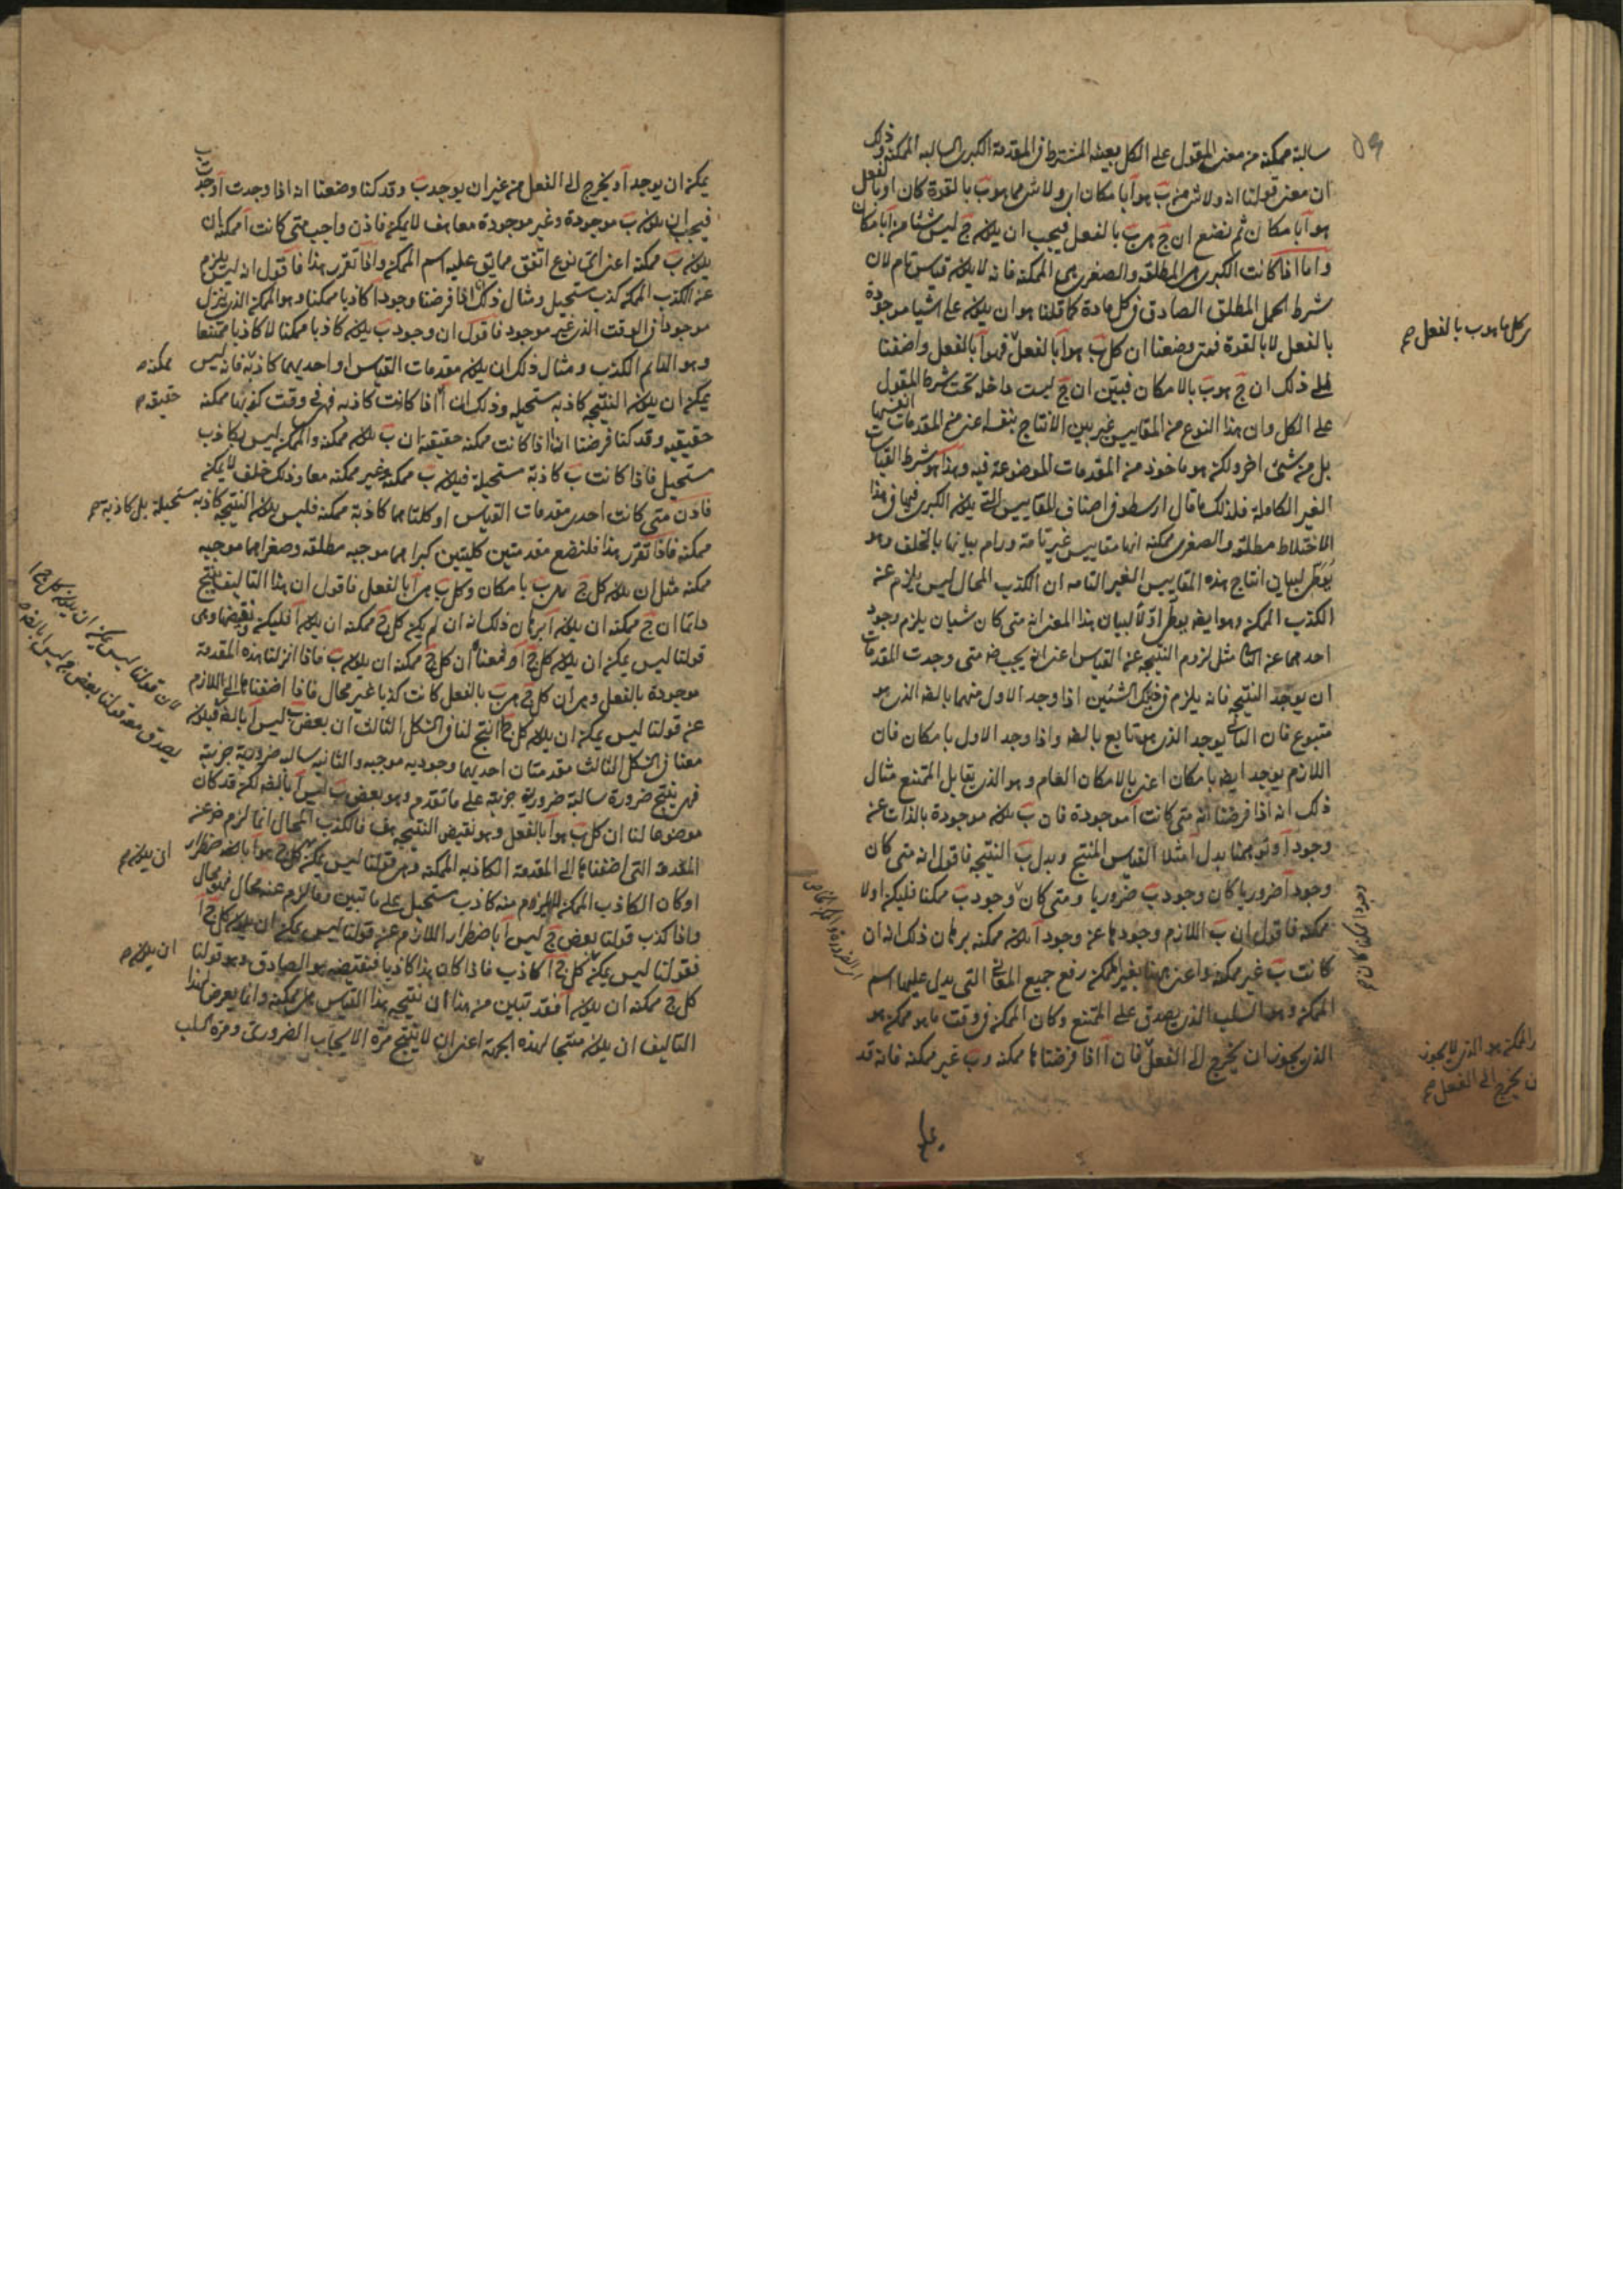 سالبة ممكنة من معنى المقول على الكل بعينه المشترط في المقدمة الكبرى السالبة الممكنة وذلك
ان معنى قولنا انه ولا شئ من ب هو آ بامكان اي ولا شئ مما هو ب بالقوة كان او بالفعل
هو آ بامكان ثم نضع ان ج هي ب بالفعل فيجب ان يكون ج ليس شئا من آ بامكان
واما اذا كانت الكبرى هي المطلقه والصغرى هي الممكنة فانه لا يكون قياس تام لان
شرط الحمل المطلق الصادق في كل مادة كما قلنا هو ان يكون على اشيا موجودة
بالفعل لا بالقوة فمتى وضعنا ان كل ب هو آ بالفعل فهو آ بالفعل واضفنا
الى ذلك ان ج هو ب بالامكان فبيّن ان ج ليست داخلة تحت شرط المقول
على الكل وان هذا النوع من المقاييس غير بين الانتاج بنفسه اعني من المقدمات انفسها
بل من شئ اخر ولكنه هو ماخوذ من المقدمات الموضوعة فيه وهذا هو شرط القياسات
الغير الكاملة فلذلك ما قال ارسطو في اصناف المقاييس التي يكون الكبرى فيها في هذا
الاختلاط مطلقه والصغرى ممكنه انها مقاييس غير تامة ورام بيانها بالخلف وهو
يوطئ لبيان انتاج هذه المقاييس الغير التامه ان الكذب المحال ليس يلزم عن
الكذب الممكن وهو ايضا يوطئ اولا لبيان هذا المعنى انه متى كان شيان يلزم وجود
احدهما عن الثاني مثل لزوم النتيجه عن القياس اعني انه يجب ضرورة متى وجدت المقدمات
ان يوجد النتيجه فانه يلزم في ذينك الشئين اذا وجد الاول منهما بالضرورة الذي هو
متبوع فان الثاني يوجد الذي هو تابع بالضرورة واذا وجد الاول بامكان فان
اللازم يوجد ايضا بامكان اعني بالامكان العام وهو الذي يقابل الممتنع مثال
ذلك انه اذا فرضنا انه متى كانت آ موجودة فان ب يكون موجودة بالذات عن
وجود آ وتوهمنا بدل آ مثلا القياس المنتج وبدل ب النتيجه فاقول انه متى كان
وجود آ ضروريا كان وجود ب ضروريا ومتى كان وجود ب ممكنا فليكن اولا
ممكنه فاقول ان ب اللازم وجودها عن وجود آ يكون ممكنه برهان ذلك انه ان
كانت ب غير ممكنه واعني ههنا بغير الممكن رفع جميع المعاني التي يدل عليها اسم
الممكن وهو السلب الذي يصدق على الممتنع وكان الممكن في وقت ما هو ممكن هو
الذي يجوز ان يخرج الى الفعل فان آ اذا فرضناها ممكنه وب غير ممكنه فانه قد
كل ما هو ب بالفعل صح
والممكن هو الذي لا يجوز
ان يخرج الى الفعل صح
يمكن ان يوجد آ ويخرج الى الفعل من غير ان يوجد ب وقد كنا وضعنا انه اذا وجدت آ وجدت ب
فيجب ان يكون ب موجودة وغير موجودة معا هف لا يمكن فاذن واجب متى كانت آ ممكنه ان
يكون ب ممكنه اعني اي نوع اتفق مما يق عليه اسم الممكن واذا تقرر هذا فاقول انه ليس يلزم
عن الكذب الممكن كذب مستحيل ومثال ذلك انا اذا فرضنا وجود آ كاذبا ممكنا وهو الممكن الذي ينزل
موجودا في الوقت الذي غير موجود فاقول ان وجود ب يكون كاذبا ممكنا لا كاذبا ممتنعا
وهو الدائم الكذب ومثال ذلك ان يكون مقدمات القياس او احديهما كاذبة فانه ليس
يمكن ان يكون النتيجه كاذبه مستحيله وذلك ان آ اذا كانت كاذبه فهي في وقت كونها ممكنه
حقيقيه وقد كنا فرضنا انه اذا كانت ممكنه حقيقيه ان ب يكون ممكنه والممكن ليس بكاذب
مستحيل فاذا كانت ب كاذبة مستحيلة فيكون ب ممكنه وغير ممكنه معا وذلك خلف لا يمكن
فاذن متى كانت احدى مقدمات القياس او كلتاهما كاذبة ممكنه فليس يكون النتيجه كاذبه مستحيلة بل كاذبه صح
ممكنه فاذا تقرر هذا فلنضع مقدمتين كليتين كبراهما موجبه مطلقه وصغراهما موجبه
ممكنه مثل ان يكون كل ج هي ب بامكان وكل ب هي آ بالفعل فاقول ان هذا التاليف ينتج
دائما ان ج ممكنه ان يكون آ برهان ذلك انه ان لم يكن كل ج ممكنه ان يكون آ فليكن نقيضها وهي
قولنا ليس يمكن ان يكون كل ج آ ومعنا ان كل ج ممكنه ان يكون ب فاذا انزلنا هذه المقدمة
موجودة بالفعل وهي ان كل ج هي ب بالفعل كانت كذبا غير محال فاذا اضفناها الى اللازم
عن قولنا ليس يمكن ان يكون كل ج آ انتج لنا في الشكل الثالث ان بعض ب ليس آ بالضرورة فيكون
معنا في الشكل الثالث مقدمتان احديهما وجوديه موجبه والثانيه سالبه ضرورية جزية
فهي ينتج ضرورة سالبة ضرورية جزية على ما تقدم وهو بعض ب ليس آ بالضرورة لكنه قد كان
موضوعا لنا ان كل ب هو آ بالفعل وهو نقيض النتيجه هف فالكذب المحال انما لزم ضرورة عن
المقدمة التي اضفناها الى المقدمة الكاذبه الممكنه وهي قولنا ليس يمكن كل ج هو آ
او كان الكاذب الممكن لا يلزم منه كاذب مستحيل على ما تبين وما لزم عنه محال فهو محال
واذا كذب قولنا بعض ج ليس آ باضطرار اللازم عن قولنا ليس يمكن ان يكون كل ج آ
فقولنا ليس يمكن كل ج آ كاذب فاذا كان هذا كاذبا فنقيضه هو الصادق وهو قولنا
كل ج ممكنه ان يكون آ فقد تبين من هذا ان نتيجه هذا القياس هي ممكنه وانما يعرض لهذا
التاليف ان يكون منتجا لهذه الجهة اعني ان لا ينتج مرة الايجاب الضروري ومرة السلب
ممكنه
حقيقه
لان قولنا ليس يمكن ان يكون كل ج آ
يصدق معه قولنا بعض ج ليس آ بالضرورة
ان يكون صح
ان يكون